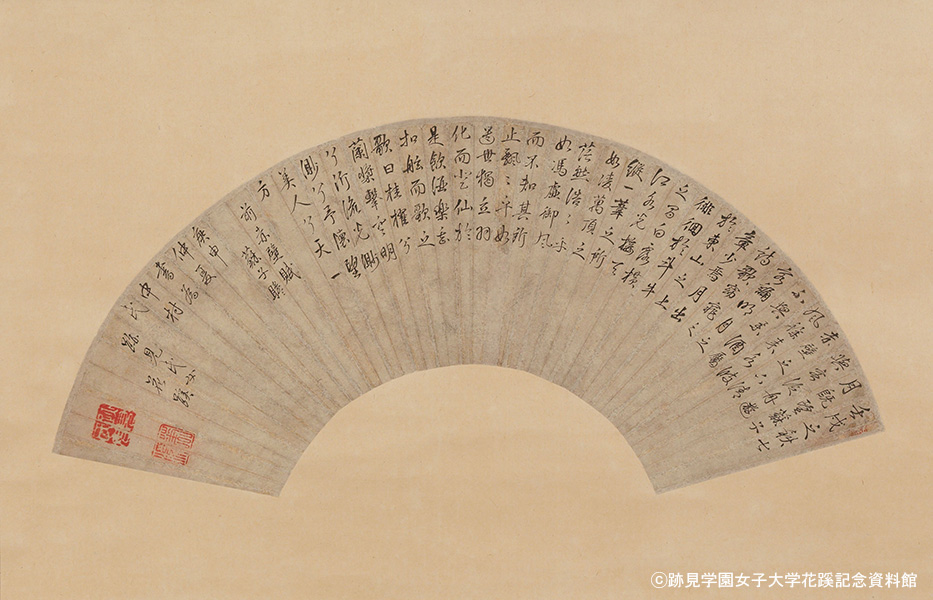 壬戌之秋七
月既望蘇子
與客泛舟遊
於赤壁之下清
風徐來水波
不興舉酒屬
客誦明月之
詩歌窈窕之
章少焉月出
於東山之上
徘徊於斗牛
之間白露橫
江水光接天
縱一葦之所
如凌萬頃之
茫然浩々乎
如馮虛御風
而不知其所
止飄々乎如
遺世獨立羽
化而登仙於
是飲酒樂甚
扣舷而歌之
歌曰桂櫂兮
蘭槳擊空明
兮泝流光渺
渺兮予懷望
美人兮天一
方
前赤壁賦
蘇子瞻
庚申
仲夏為
書
中村
氏
跡見氏女
花蹊
©跡見学園女子大学花蹊記念資料館